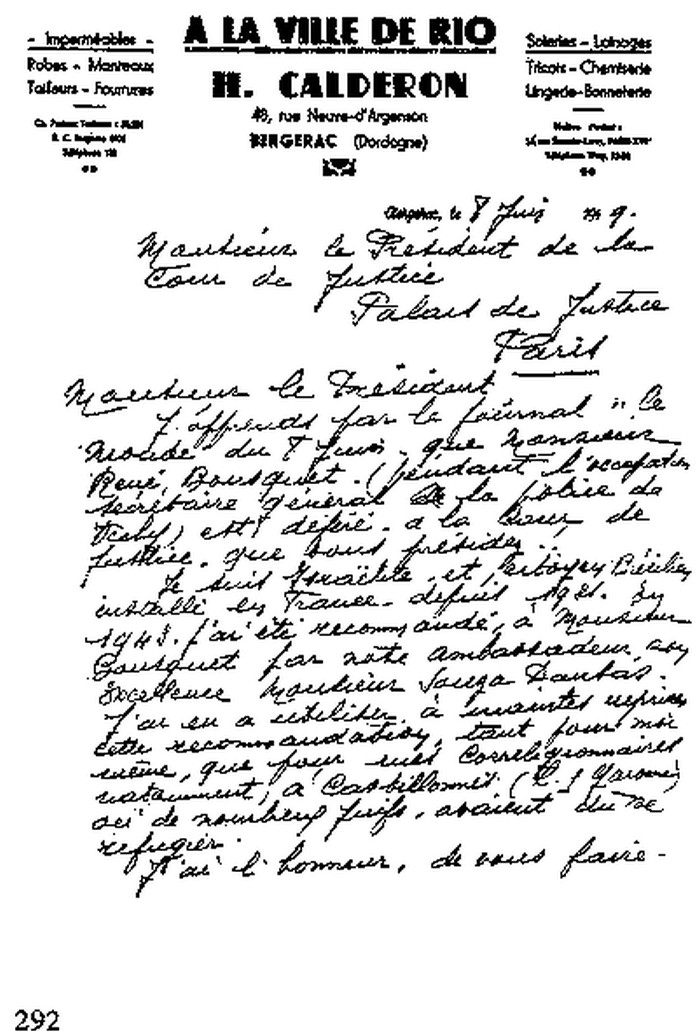 - Imperméables -
Robes - Manteaux
Tailleurs - Fourrures
A LA VILLE DE RIO
H. CALDERON
48, rue Neuve-d'Argenson
BERGERAC (Dordogne)
Soieries - Lainages
Tricots - Chemiserie
Lingerie-Bonneterie
Bergerac, le 8 Juin 1949.
Monsieur le Président de la
Cour de Justice
Palais de Justice
Paris
Monsieur le Président
J'apprends par le journal "Le
Monde" du 8 Juin, que Monsieur
René Bousquet. (pendant l'occupation
secrétaire général de la police de
Vichy) est déféré a la Cour de
Justice, que vous présidez.
Je suis Israélite, et citoyen Brésilien
installé en France depuis 1921. En
1943. j'ai été recommandé, à Monsieur
Bousquet par notre ambassadeur, son
Excellence Monsieur Souza Dantas.
J'ai eu a utiliser, à maintes reprises
cette recommandation, tant pour moi
même, que pour mes correligionnaires
notamment, à Castillonnès (L. & Garonne)
où de nombreux juifs, avaient du se
refugier.
J'ai l'honneur, de vous faire-
292